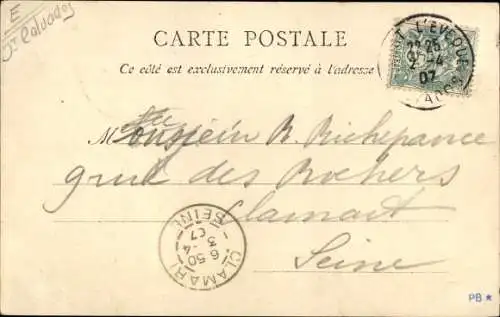 E
Calvados
CARTE POSTALE
Ce côté est exclusivement réservé à l'adresse
T L'EVEQUE
22 25
2 -4
07
CALVADOS
Monsieur R. Richepance
rue des Rochers
Clamart
Seine
CLAMART
6 50
3 -4
07
SEINE
PB *